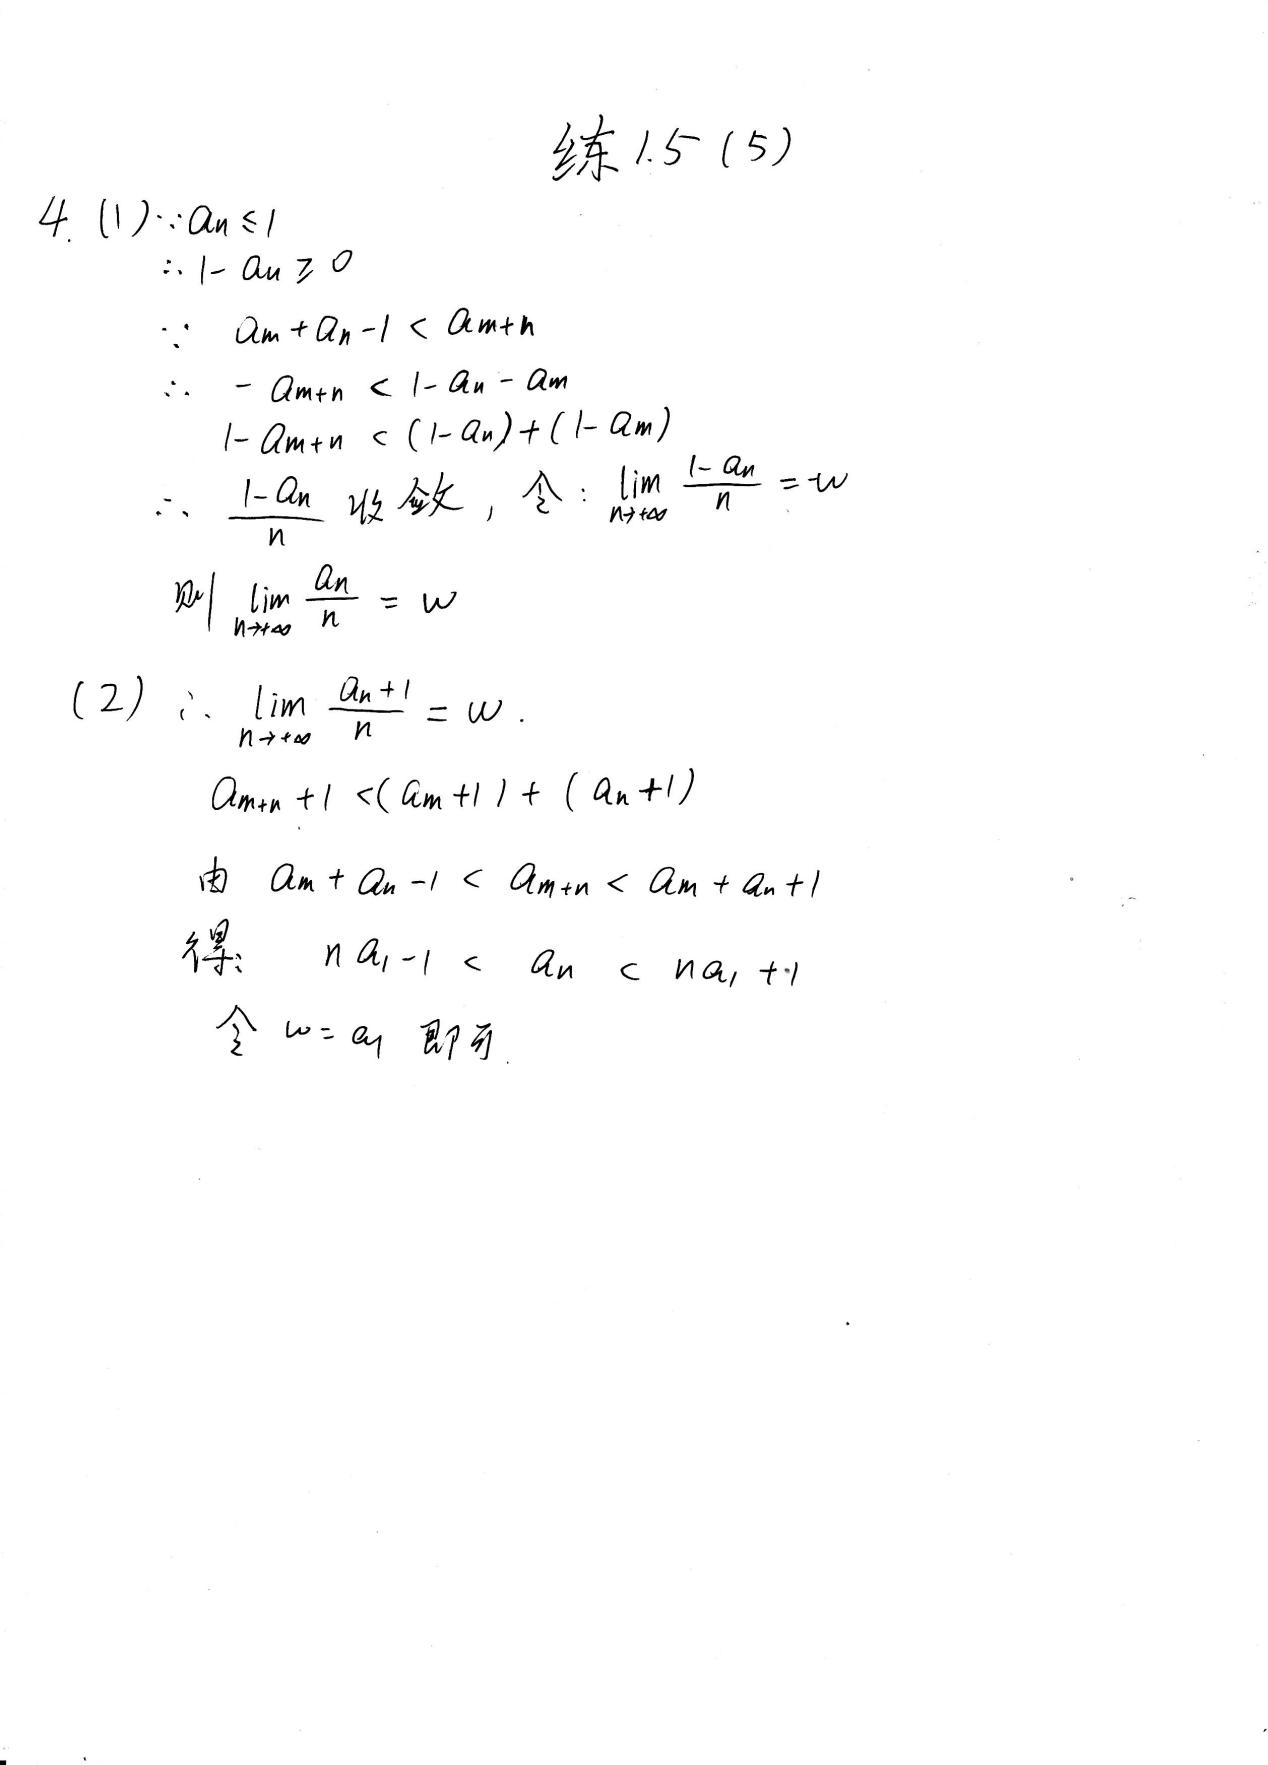 练1.5(5)
4.(1)∵an≤1
∴1-an≥0
∵ am+an-1<am+n
∴ -am+n<1-an-am
1-am+n<(1-an)+(1-am)
∴ (1-an)/n 收敛,令:lim n→+∞ (1-an)/n=-w
则 lim n→+∞ an/n=w
(2)∴ lim n→+∞ (an+1)/n=w.
am+n+1<(am+1)+(an+1)
由 am+an-1<am+n<am+an+1
得: na1-1<an<na1+1
令 w=a1 即可.